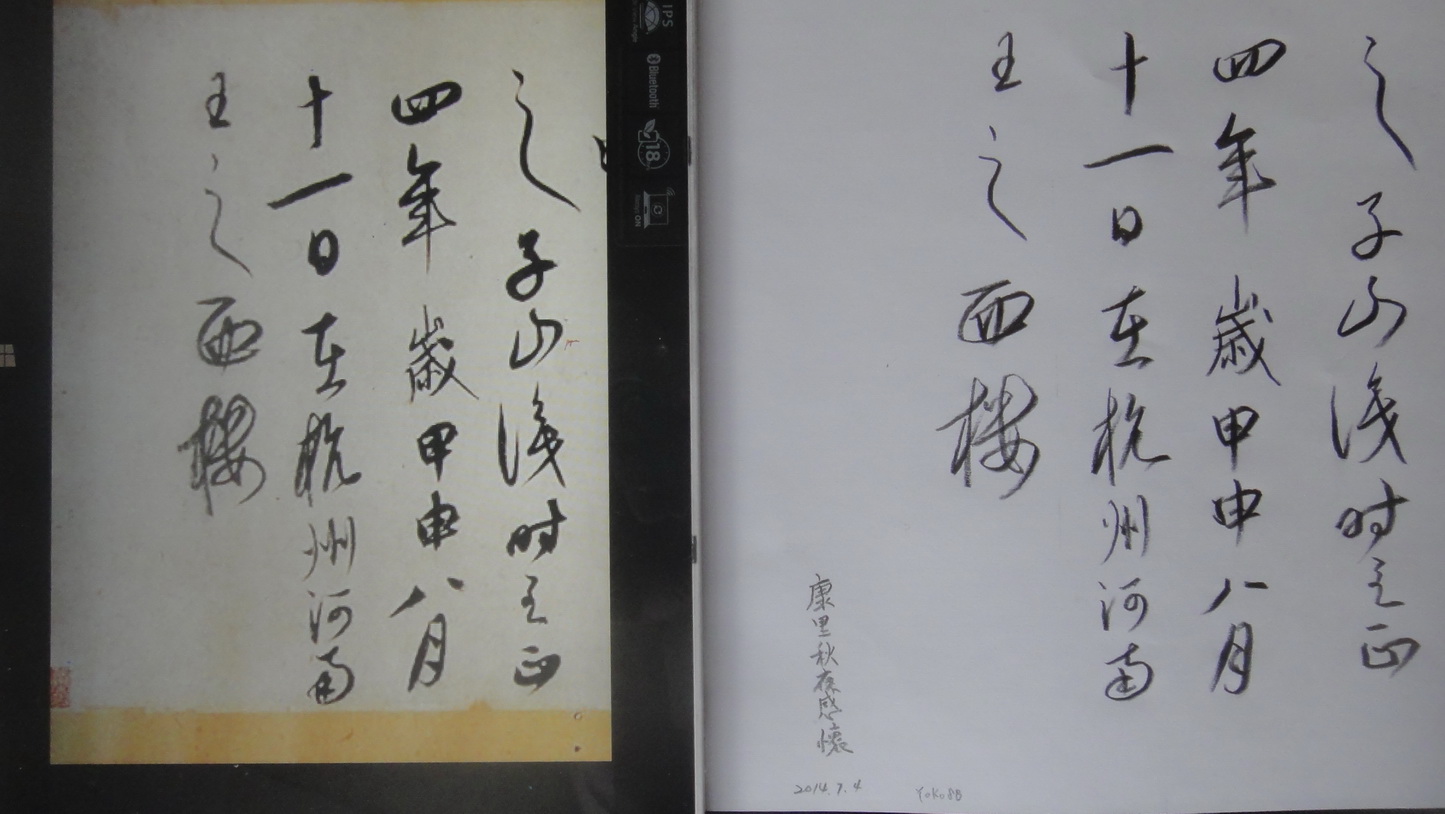 之子山識时至正
四年歲甲申八月
十一日在杭州河南
王之西樓
IPS
Bluetooth
18
之子山識时至正
四年歲甲申八月
十一日在杭州河南
王之西樓
康里秋夜感懷
2014.7.4